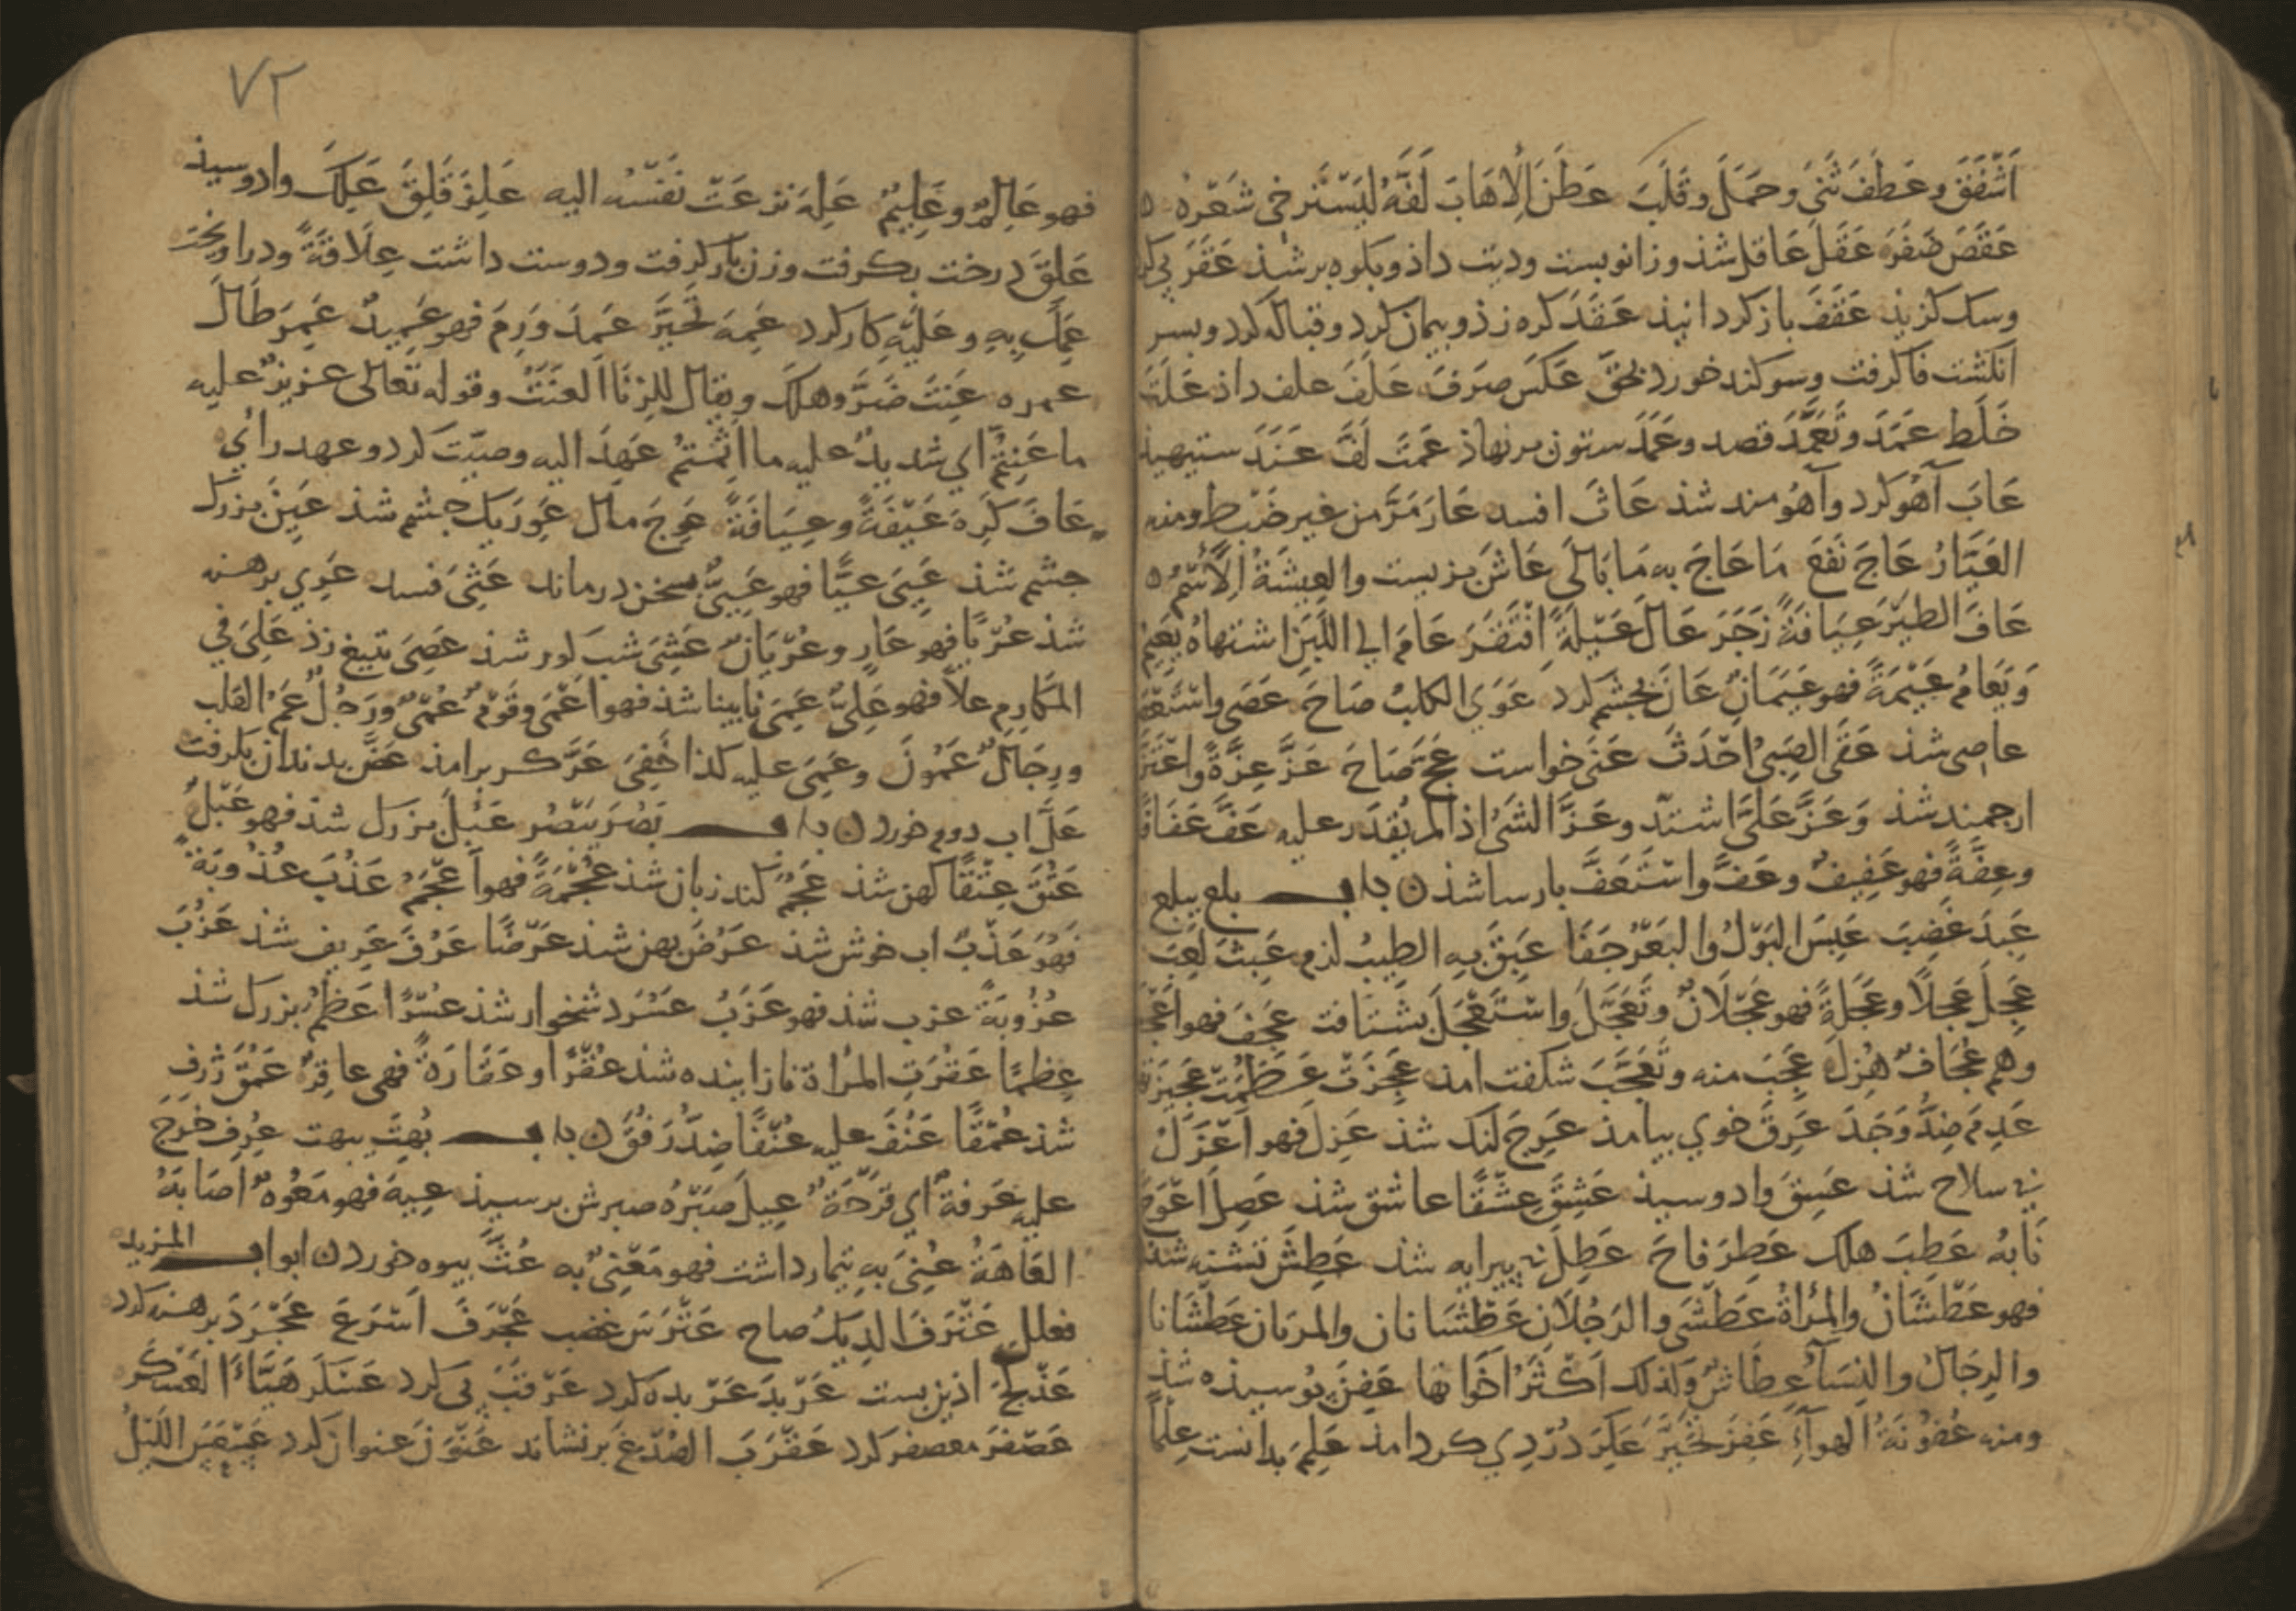 اَشْفَقَ وعَطَفَ ثَنَى وحَمَلَ وقَلَبَ عَطَنَ الإهَابَ لَفَّهُ لِيَسْتَرخِي شَعْرُه
عَقَصَ ضَفَرَ عَقَلَ عَاقل شذ وزانو ببست وديت داذ وبكوه بر شذ عَقَرَ پی کر
وسك كزيذ عَقَفَ باز كردانيذ عَقَدَ كره زذ وپيمان كرد وقباله كرد وبسر
انكشت فاكرفت وسوكند خورد بحَقٍّ عَكَسَ صَرَفَ عَلَفَ علف داذ عَلَثَ
خَلَط عَمَدَ وتَعَمَّدَ قصد وعَمَدَ ستون برنهاذ عَمَتَ لَفَّ عَنَدَ ستيهيذ
عَابَ آهُو كرد وآهُومند شذ عَاثَ افسد عَارَ مَرَّ من غير ضَبْط ومنه
العَيَّارُ عَاجَ نَفَعَ مَا عَاجَ به مَا بَالَى عَاشَ بزيست والعِيشَةُ الاسْمُ
عَافَ الطيْرَ عِيَافَةً زَجَرَ عَالَ عَيْلَةً افْتَقَرَ عَامَ الى اللَّبَنِ اشتهاهُ يَعِيمُ
وَيَعَامُ عَيْمَةً فهو عَيْمَانُ عَانَ بچشم كرد عَوَى الكلبُ صَاحَ عَصَى واسْتَعْصَى
عاصى شذ عَقَى الصَبىُّ احْدَثَ عَنَى خواست عَجَّ صَاحَ عَزَّ عِزَّةً واعْتَزَّ
ارجمند شذ وَعَزَّ عَلَىَّ اشتدّ وعَزَّ الشَىْءُ اذا لم يُقْدَر عليه عَفَّ عَفَافًا
وعِفَّةً فهو عَفِيفٌ وعَفٌّ واسْتَعَفَّ پارسا شذ ن باب بلع يبلع
عَبِدَ غَضِبَ عَبِسَ البَوْلُ والبَعْرُ جَفَا عَبِقَ بِهِ الطِيبُ لزم عَبِثَ لَعِبَ
عَجِلَ عَجَلًا وعَجَلَةً فهو عَجْلَانُ وتَعَجَّلَ واسْتَعْجَلَ بشتافت عَجِفَ فهو اَعْجَفُ
وهم عُجَافٌ هُزِلَ عَجِبَ منه وتَعَجَّبَ شكفت امذ عَجِزَتْ عَظُمَتْ عَجِيزَتُهَا
عَدِمَ ضِدُّ وَجَدَ عَرِقَ خوى بيامذ عَرِجَ لنك شذ عَزِلَ فهو اَعْزَلُ
بى سلاح شذ عَسِقَ وادوسيذ عَشِقَ عِشْقًا عاشق شذ عَصِلَ اعْوَجَّ
نَابُهُ عَطِبَ هلك عَطِرَ فاحَ عَطِلَ بى پيرايه شذ عَطِشَ تشنه شذ
فهو عَطْشَانُ والمرْأةُ عَطْشَى والرَجُلَانِ عَطْشَانان والمرتان عَطْشَانا
والرِجَالُ والنِسَآءُ عِطَاشٌ وكذلك اَكْثَرُ اَخَوَاتها عَفِنَ پوسيذه شذ
ومنه عُفُونَةُ الهوآءِ عَفِرَ تَحَيَّرَ عَكِرَ دُرْدِي كرد امذ عَلِمَ بدانست عِلْمًا
٧٢
فهو عَالِمٌ وعَلِيمٌ عَلِهَ نزعَتْ نَفْسُه اليه عَلِزَ قَلِقَ عَلِكَ وادوسيذ
عَلِقَ درخت بكرفت وزن بار كرفت ودوست داشت عِلَاقَةً ودراويخت
عَمِلَ بِهِ وعَلَيْهِ كار كرد عَمِهَ تَحَيَّرَ عَمِدَ وَرِمَ فهو عَمِيدٌ عَمِرَ طَالَ
عمره عَنِتَ ضَرَّ وهلك ويقال للزِنَا العَنَتُ وقوله تَعَالى عزيزٌ عليه
ما عَنِتُّمْ اى شديدٌ عليه ما اَثِمْتُمْ عَهِدَ اليه وصيّت كرد وعهد را اى
عَافَ كَرِهَ عَيْفَةً وعِيَافَةً عَوِجَ مال عَوِرَ يك چشم شذ عَيِنَ بزرك
چشم شذ عَيِىَ عِيًّا فهو عَيِىٌّ بسخن درماند عَثِىَ فسد عَرِىَ برهنه
شذ عُرْيًا فهو عَارٍ وعُرْيَانٌ عَشِىَ شب كور شذ عَصِىَ بتيغ زذ عَلِىَ في
المَكَارِمِ علاً فهو عَلِىٌّ عَمِىَ نابينا شذ فهو اَعْمَى وقَوْمٌ عُمْىٌ ورَجُلٌ عَمِ القلب
ورِجَالٌ عَمُونَ وعَمِىَ عليه كذا خَفِىَ عَرَّ كر برامذ عَضَّ بدندان بكرفت
عَلَّ اب دوم خورد ن باب بَصُرَ يَبْصُر عَبُلَ بزرك شذ فهو عَبْلٌ
عَتُقَ عِتْقًا كهن شذ عَجُمَ كند زبان شذ عُجْمَةً فهو اَعْجَمُ عَذُبَ عُذُوبَةً
فَهُوَ عَذْبٌ اب خوش شذ عَرُضَ پهن شذ عَرْضًا عَرُفَ عَرِيف شذ عَزُبَ
عُزُوبَةً عزب شذ فهو عَزَبٌ عَسُرَ دشخوار شذ عُسْرًا عَظُمَ بزرك شذ
عِظمًا عَقُرَتِ المَرْاة نازاينده شذ عُقْرًا وعَقَارَةً فهى عاقِرٌ عَمُقَ ژرف
شذ عُمْقًا عَنُفَ عليه عُنْفًا ضِدُّ رَفُقَ ن باب بُهِتَ يبهت عُرِفَ خرج
عليه عَرفةٌ اى قَرْحَةٌ عِيلَ صَبْرُهُ صبرش برسيذ عِيهَ فهو مَعُوهٌ اصَابَهُ
العَاهَةُ عُنِىَ بِهِ تيمار داشت فهو مَعْنِىٌّ به عُثَّ بيوه خورد ن ابواب المزيد
فعلل عَتْرَفَ الديكُ صاح عَتْرَسَ غضب عَجْرَفَ اَسْرَعَ عَجْرَدَ برهنه كرد
عَذْلَجَ اذين بست عَرْبَدَ عَرْبده كرد عَرْقَبَ پى كرد عَسْكَرَ هَيَّأ العَسَاكِرَ
عَصْفَرَ معصفر كرد عَقْرَبَ الصُدْغَ برنشاند عَنْوَنَ عنوان كرد عَسْعَسَ اللَيْلُ